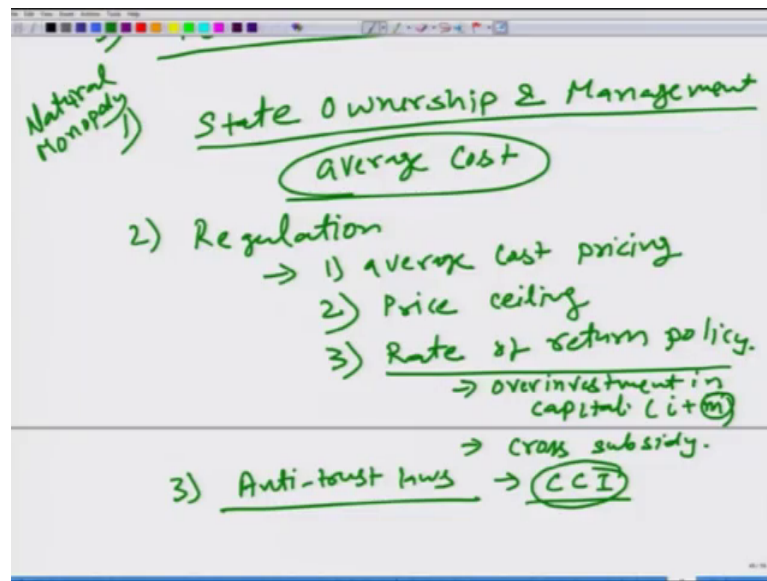 Natural
Monopoly
1) State Ownership & Management
average Cost
2) Regulation
→ 1) average cost pricing
2) Price ceiling
3) Rate of return policy.
→ overinvestment in
capital. (i+m)
→ cross subsidy.
3) Anti-trust laws → CCI